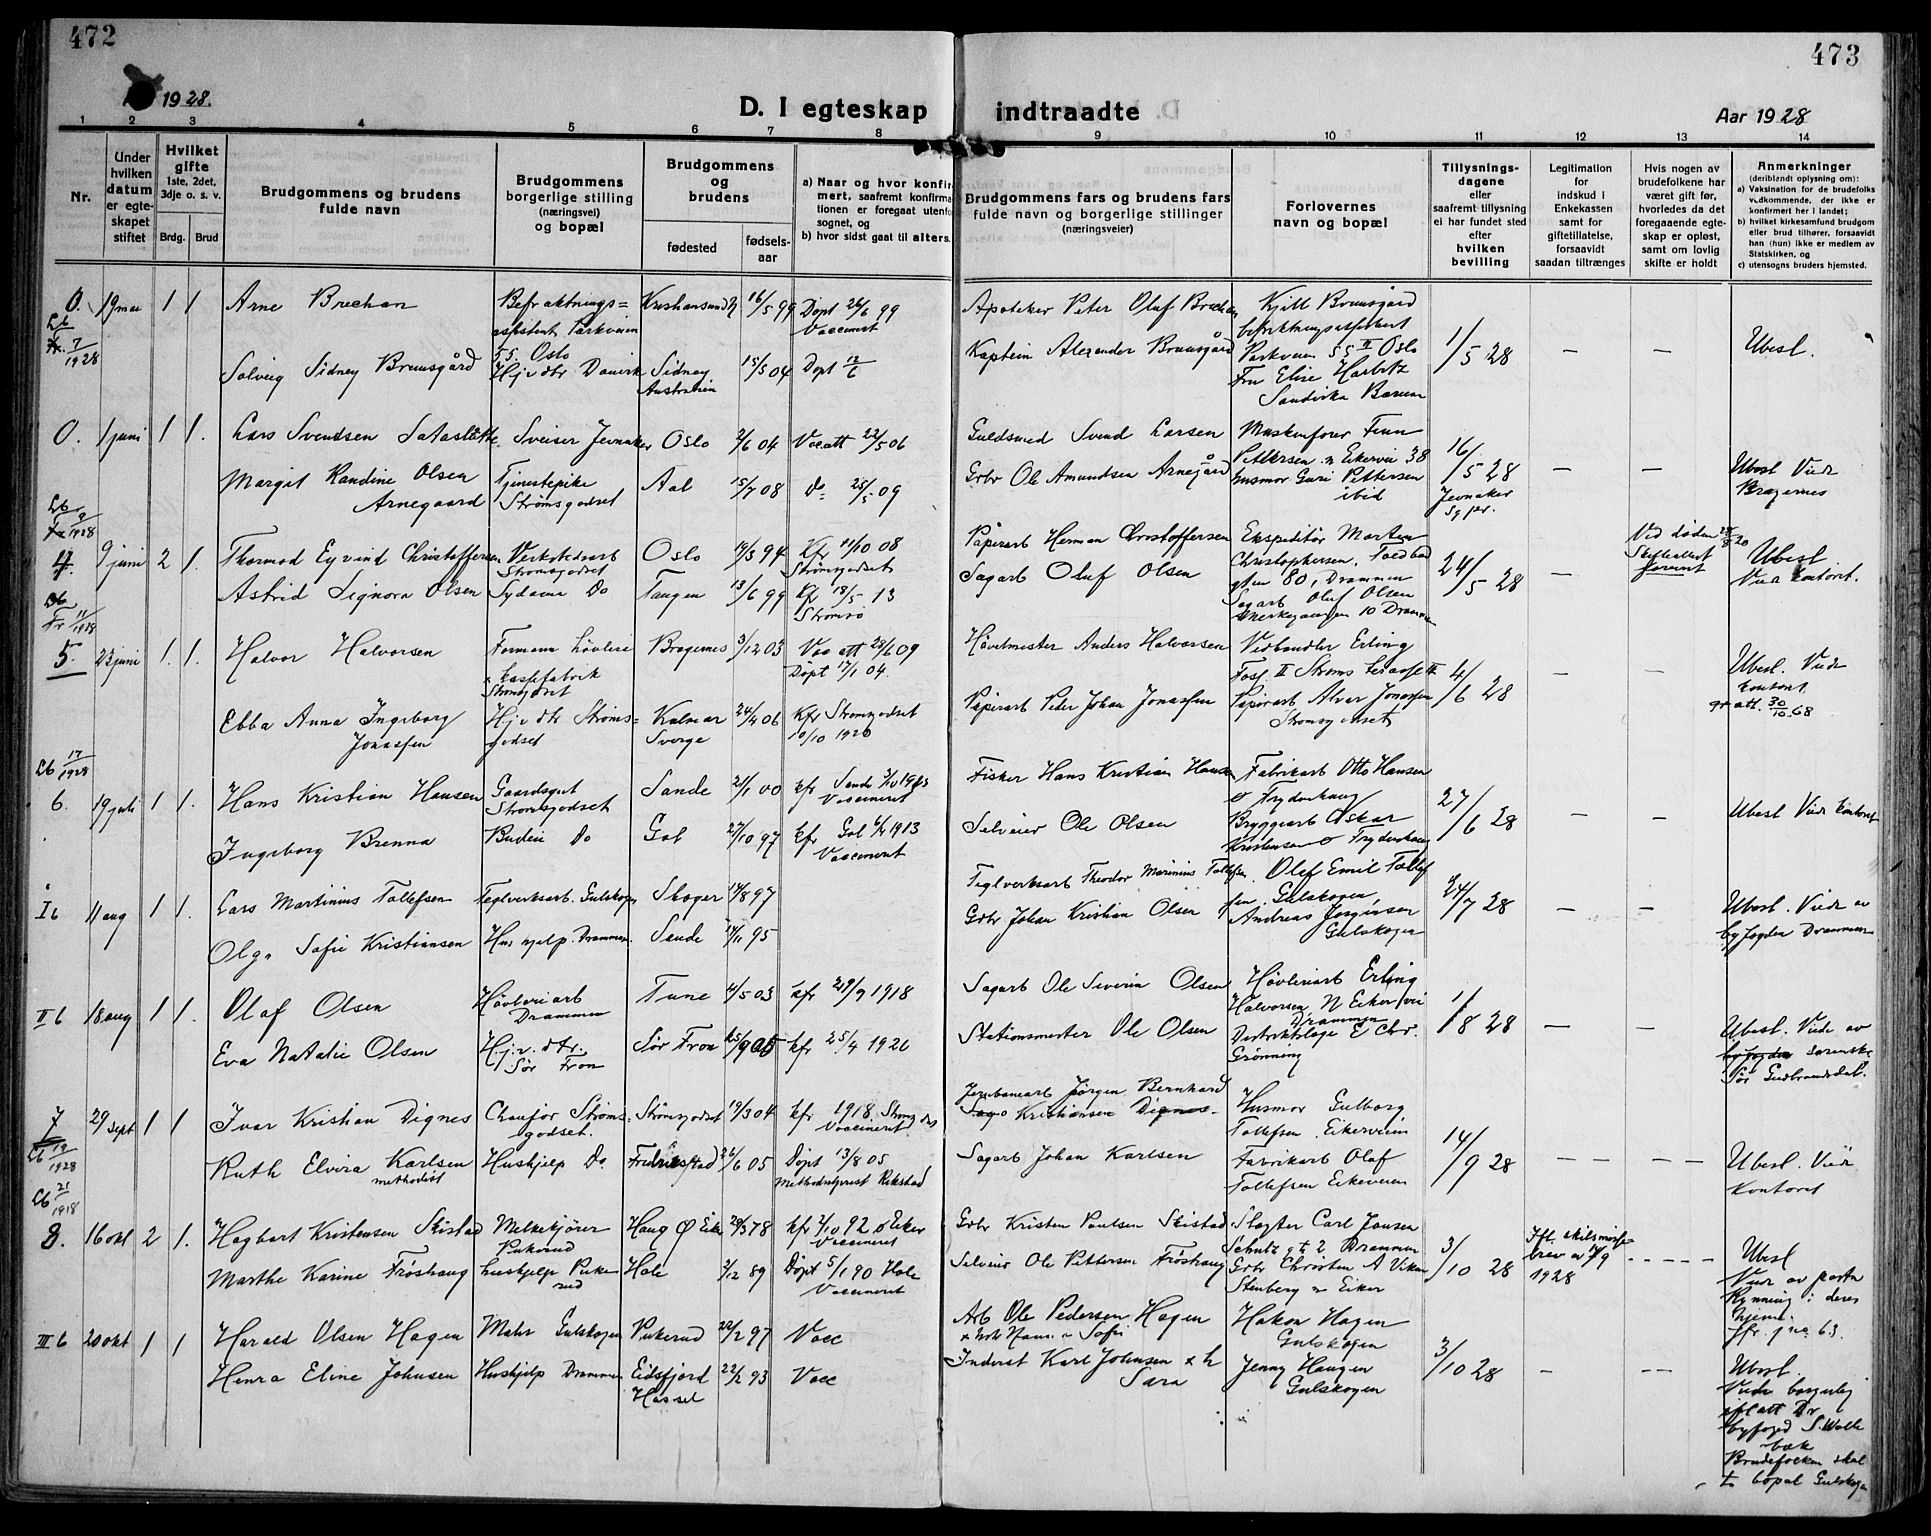 472
473
1928.
D. I egteskap
indtraadte
Aar 1928
1 2 3 4 5 6 7 8 9 10 11 12 13 14
Nr.
Under
hvilken
datum
er egte-
skapet
stiftet
Hvilket
gifte
1ste, 2det,
3dje o. s. v.
Brdg.
Brud
Brudgommens og brudens
fulde navn
Brudgommens
borgerlige stilling
(næringsvei)
og bopæl
Brudgommens
og
brudens
fødested
fødsels-
aar
a) Naar og hvor konfir
mert, saafremt konfirma
tionen er foregaat utenfo
sognet, og
b) hvor sidst gaat til alters.
Brudgommens fars og brudens fars
fulde navn og borgerlige stillinger
(næringsveier)
Forlovernes
navn og bopæl
Tillysnings-
dagene
eller
saafremt tillysning
ei har fundet sted
efter
hvilken
bevilling
Legitimation
for
indskud i
Enkekassen
samt for
giftetillatelse,
forsaavidt
saadan tiltrænges
Hvis nogen av
brudefolkene har
været gift før,
hvorledes da det
foregaaende egte-
skap er opløst,
samt om lovlig
skifte er holdt
Anmerkninger
(deriblandt oplysning om):
a) Vaksination for de brudefolks
vedkommende, der ikke er
konfirmert her i landet;
b) hvilket kirkesamfund brudgom
eller brud tilhører, forsaavidt
han (hun) ikke er medlem av
Statskirken, og
c) utensogns bruders hjemsted.
0. 19 mai 1 1 Arne Brechan
Befraktnings=
assistent Parkveien
55. Oslo
Kristiansund N 16/5 99 Døpt 26/6 99
Vaccinert
Apoteker Peter Oluf Brechan
Kjell Bruusgård
befraktningsassistent
Parkveien 55 II Oslo
Fru Elise Harbitz
Sandvika Bærum
1/5 28 — — Ubest.
Lb 7/1928
Solveig Sidney Bruusgård
Hjv dtr Danvik Sidney
Australien
15/5 04 Døpt 12/6
Kaptein Alexander Bruusgård
0. 1 juni 1 1. Lars Svendsen Sataslåtte
Sveiser Jevnaker Oslo 2/6 04 Vac att 22/5 06
Guldsmed Svend Larsen
Maskinfører Finn
Pettersen N Eikervei 38
Husmor Guri Pettersen
ibid
16/5 28
Jevnaker
— — Ubest Viede
Bragernes
Margit Randine Olsen
Arnegaard
Tjenestepike
Strømsgodset
Aal 15/7 08 do= 25/5 09
Grbr Ole Amundsen Arnegård
Lb 9/1928
4. 9 juni 2 1. Thormod Eyvind Christoffersen
Verkstedsarb
Strømsgodset
Oslo 19/3 94 Kfr 11/10 08
Strømsgodset
Papirarb Herman Christoffersen
Ekspeditør Morten
Christophersen, Toldbod
gten 80, Drammen
Sagarb Oluf Olsen
24/5 28 —
Ved døden
Skifteattest
Ubest
Viede kontoret.
Astrid Signora Olsen
Sydame Do Tangen 13/6 99 Kfr 18/5 13
Strømsø
Sagarb Oluf Olsen
5. 23 juni 1. 1. Halvor Halvorsen
Formann høvleri
& kassefabrik
Strømsgodset
Bragernes 3/12 03 Vac att 28/6 09
Døpt 17/1 04.
Høvelmester Anders Halvorsen
Vedhandler Erling
Foss II Strøms terasse
Papirarb Alvar Jonassen
Strømsgodset
4/6 28 — — Ubest. Viede
kontoret
att. 30/10.68
Ebba Anna Ingeborg
Jonassen
Hjv dtr Strøms=
godset
Kalmar
Sverge
24/4 06 Kfr Strømsgodset
10/10 1920
Papirarb Peder Johan Jonassen
Lb 17/1928
6. 19 juli 1 1. Hans Kristian Hansen
Gaardsgut
Strømsgodset
Sande 21/1 00 kfr Sande
Vaccineret
Fisker Hans Kristian Hansen
Fabrikarb Otto Hansen
Bryggearb Oskar
Kristensen
27/6 28 — — Ubest Viede kontoret
Ingeborg Brenna
Budeie Do Gol 27/10 97 kfr Gol 6/4 1913
Vaccineret
Selveier Ole Olsen
I b 11 aug 1 1. Lars Martinius Tollefsen
Teglverksarb. Gulskogen Skoger 14/8 97
Teglverksarb Theodor Marinius Tollefsen
Olef Emil Tollef
sen, Gulskogen,
Andreas Jørgensen
Gulskogen
24/7 28 — — Ubest. Viede av
byfogden Drammen
Olga Sofie Kristiansen
Hushjelp. Drammen. Sande 14/11 95
Grbr Johan Kristian Olsen
II b 18 aug 1 1. Olaf Olsen
Høvleriarb
Drammen
Tune 4/5 03 kfr 29/9 1918
Sagarb Ole Severin Olsen
Høvleriarb Erling
Halvorsen, N Eikervei
Drammen
Distriktslæge E Chr.
Grønning
1/8 28 — — Ubest. Viede av
byfogden sorenskr
Sør Gudbrandsdal.
Eva Natalie Olsen
Hjv. dtr.
Sør Fron
Sør Fron 25/9 05 kfr 25/4 1920
Stationsmester Ole Olsen
7 29 sept 1 1 Ivar Kristian Dignes
Chaufør Strøms
godset.
Strømsgodset 19/3 04 kfr 1918 Strømsgodset
Vaccineret
Jernbanearb Jørgen Bernhard
Kristiansen Dignes.
Husmor Gulborg
Tollefsen. Eikerveien
Fabrikarb Olaf
Tollefsen Eikerveien
14/9 28 — — — — — Ubest. Vie
kontoret
Lb 19/1928
Ruth Elvira Karlsen
methodist
Hushjelp Do Fredrikstad 26/6 05 Døpt 13/8 05
Methodistprest Rikstad
Sagarb Johan Karlsen
Lb 21/1918
8. 16 okt 2 1. Hagbart Kristensen Skistad
Melkekjører
Pukerud
Haug Ø Eiker 29/3 78 kfr 2/10 92 Ø Eiker
Vaccineret
Grbr Kristen Paulsen Skistad
Slagter Carl Jonsen
Schultz gt 2 Drammen
Grbr Christen A Viken
Stenberg N Eiker
3/10 28
Ifl. skilsmisse
brev av 14/9
1928
— — — — Ubest
Viede av pastor
Rynning i deres
hjem.
Jfr. j no 63.
Marthe Karine Frøshaug
hushjelp Puke
rud
Hole 3/12 89 Døpt 5/1 90 Hole
Vaccineret
Selveier Ole Pettersen Frøshaug
III b 20 okt 1 1 Harald Olsen Hagen
Malr Gulskogen Pukerud 22/2 97 Vacc
Arb Ole Pedersen Hagen
Håkon Hagen
Gulskogen
Jenny Haugen
Gulskogen
3/10 28 — — Ubest.
Viede borgerlig
ifl att Dr
byfoged S. Wolle
bæk
Brudefolkene skal
bopel Gulskogen
Henra Eline Johnsen
Hushjelp Drammen Eidsfjord
Hassel
22/2 93 Vacc
Inderst Karl Johnsen & h
Sara